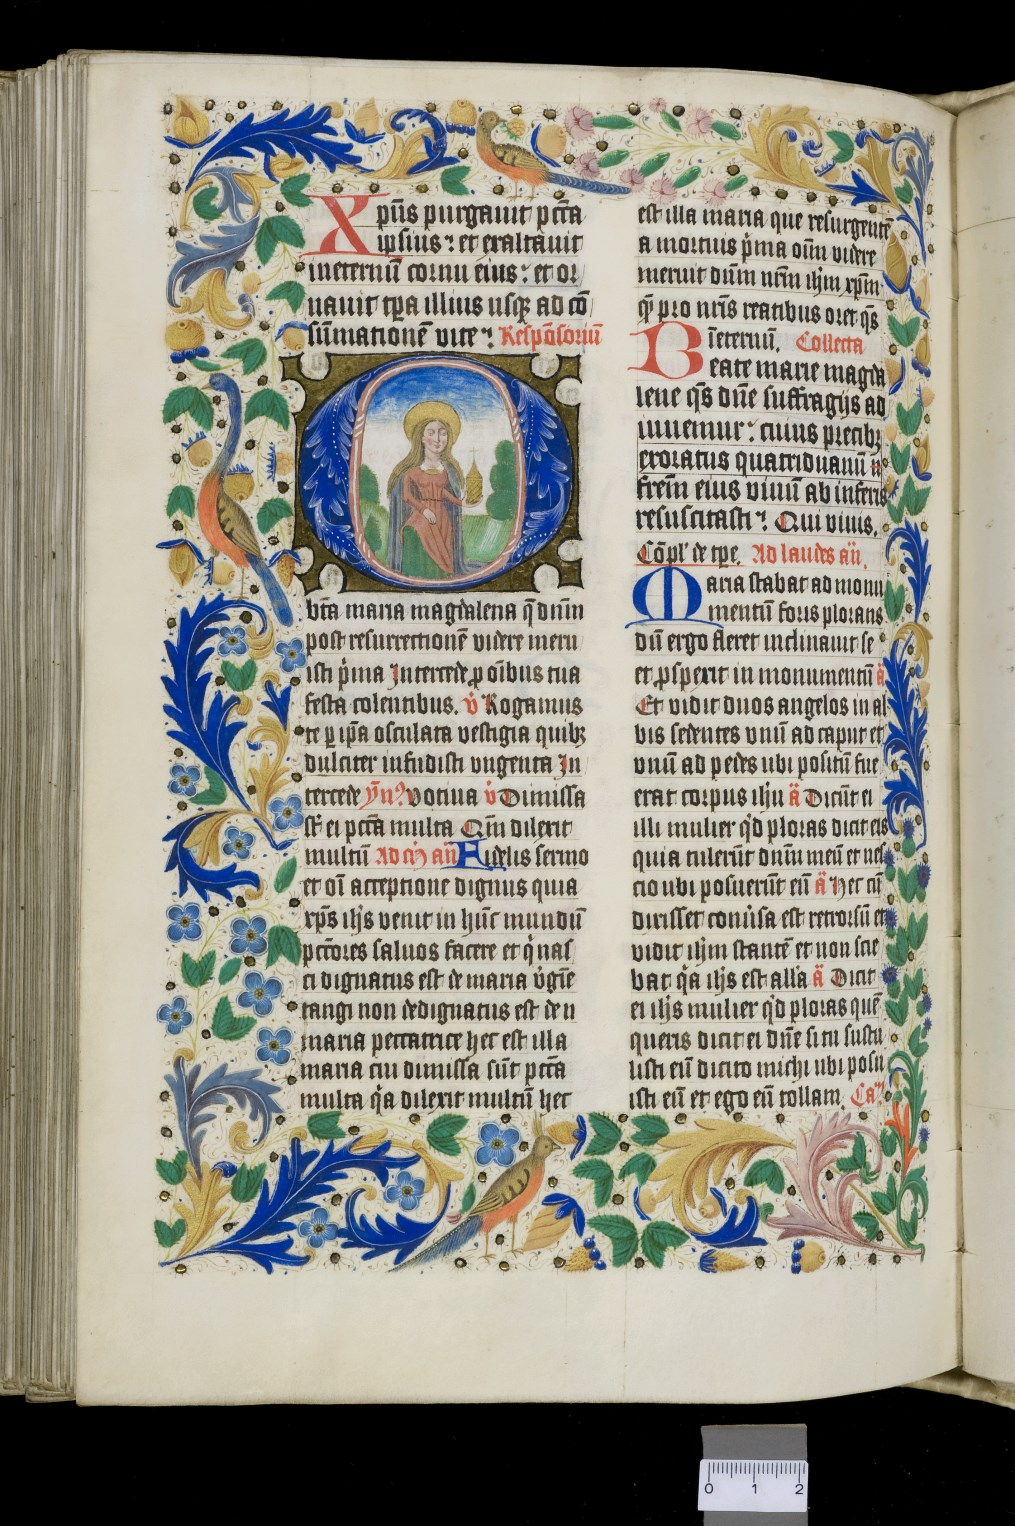 Xpūs purgauit pctā
ipsius : et exaltauit
ineternū cornu eius : et or
nauit tpa illius usqʒ ad cō
sūmationē vite : Respōsoriū
O
bta maria magdalena q̄ dnm̄
post resurrectionē videre meru
isti pima Intercede pro oībus tua
festa colentibus. v̄ Rogamus
te p ipa osculata vestigia quibʒ
dulciter infudisti vngenta In
tercede ymꝰ Votiua v̄ Dimissa
sūt ei pctā multa Qm̄ dilexit
multū Ad m̄ an̄ Fidelis sermo
et oī acceptione dignus quia
xpūs ihs venit in hūc mundū
pctōres saluos facere et qui nas
ci dignatus est de maria virgīe
tangi non dedignatus est de n
maria peccatrice hec est illa
maria cui dimissa sūt pctā
multa qia dilexit multū hec
est illa maria que resurgentē
a mortuis pima oīm videre
meruit dnm̄ nrm̄ ihm xpm̄
q̄ pro nris reatibus oret qs
ineternū. Collecta
Beate marie magda
lene qs dne suffragijs ad
iuuemur : cuius precibʒ
exoratus quatriduanū
frēm eius viuū ab inferis
resuscitasti : Qui viuis.
Cōpl' de tpe. Ad laudes an̄.
Maria stabat ad monu
mentū foris plorans
dū ergo fleret inclinauit se
et pspexit in monumentū a
Et vidit duos angelos in al
bis sedentes vnū ad caput et
vnū ad pedes ubi positū fue
erat corpus ihu a Dicūt ei
illi mulier qd ploras dicit eis
quia tulerūt dnm̄ meū et nes
cio ubi posuerūt eū a Hec cū
dixisset conuersa est retrorsū et
vidit ihm stantē et non scie
bat qia ihs est all'a a Dicit
ei ihs mulier qd ploras quē
queris dicit ei dne si tu sustu
listi eū dicito michi ubi posu
isti eū et ego eū tollam. Ca
0 1 2